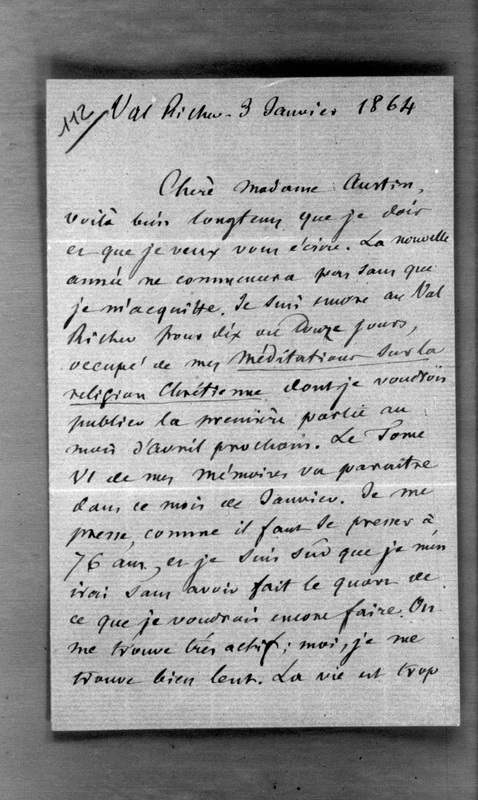 112
Val Richer - 3 Janvier 1864
Chère Madame Austin,
voilà bien longtems que je dois
et que je veux vous écrire. La nouvelle
année ne commencera pas sans que
je m'acquitte. Je suis encore au Val
Richer pour dix ou douze jours,
occupé de mes Méditations sur la
religion Chrétienne dont je voudrois
publier la première partie au
mois d'avril prochain. Le Tome
VI de mes Mémoires va paraître
dans ce mois de Janvier. Je me
presse, comme il faut se presser à
76 ans, et je suis sûr que je m'en
irai sans avoir fait le quart de
ce que je voudrais encore faire. On
me trouve très actif ; moi, je me
trouve bien lent. La vie est trop